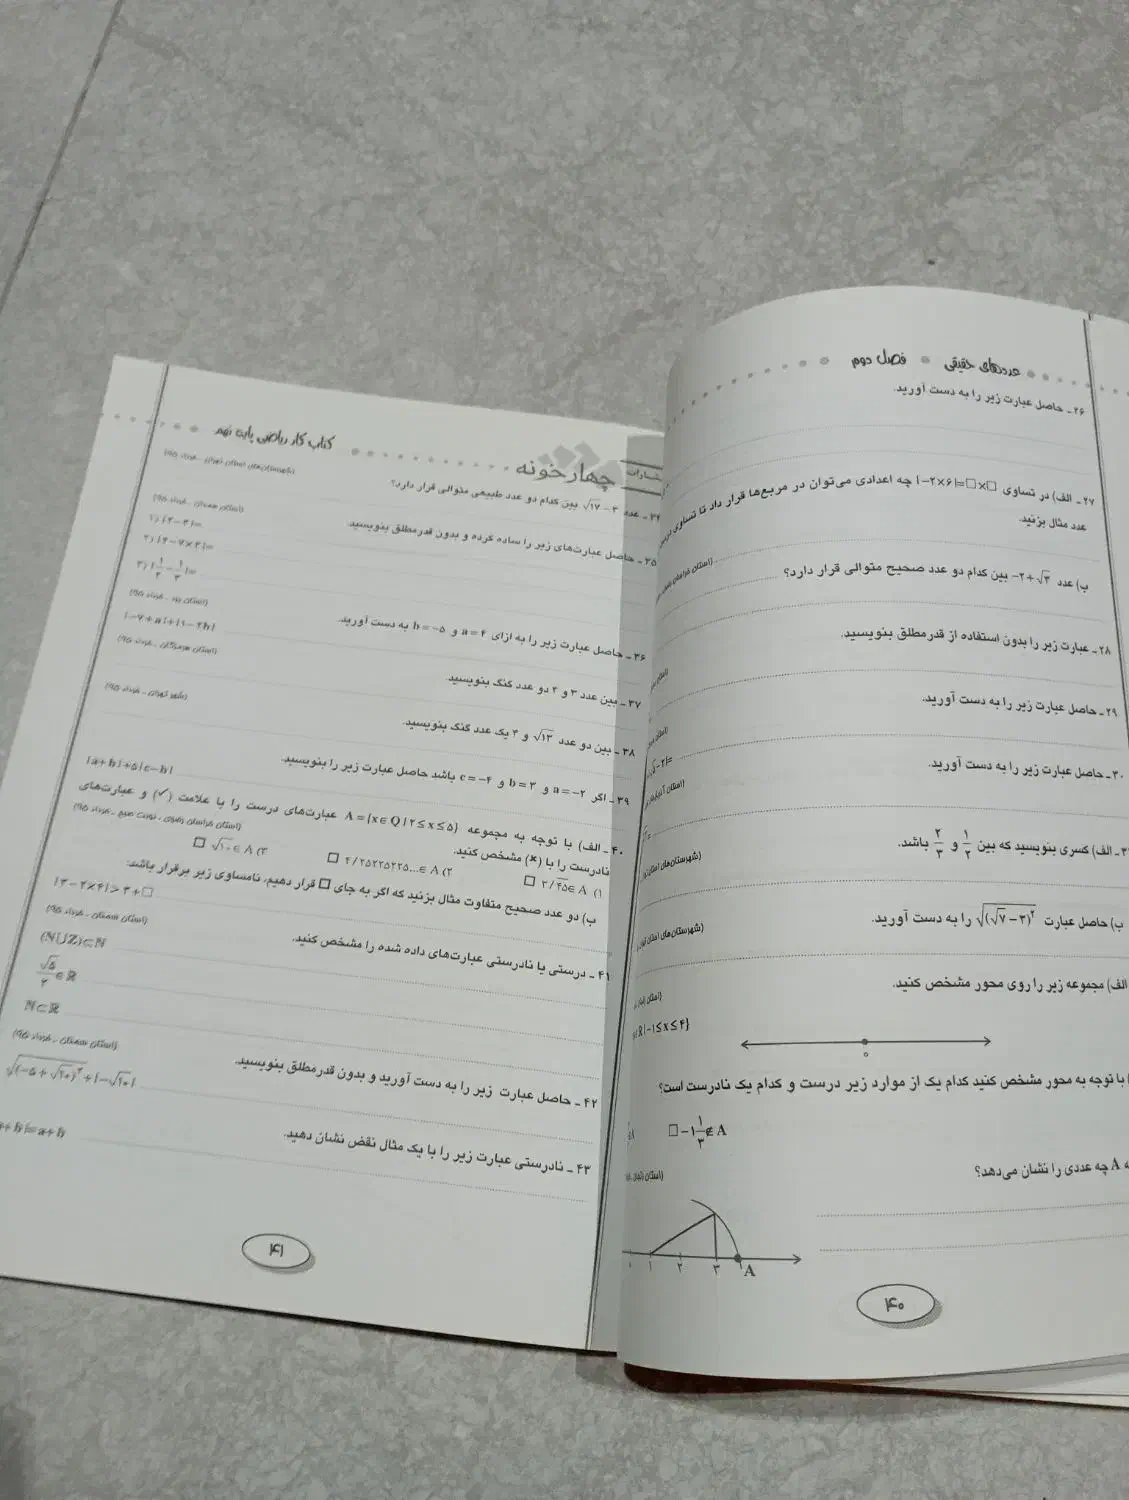 عددهای حقیقی • فصل دوم
۲۶ ـ حاصل عبارت زیر را به دست آورید.
۲۷ ـ الف) در تساوی |−۲×۶|=□×□ چه اعدادی می‌توان در مربع‌ها قرار داد تا تساوی
عدد مثال بزنید.
ب) عدد −۲+√۳ بین کدام دو عدد صحیح متوالی قرار دارد؟
۲۸ ـ عبارت زیر را بدون استفاده از قدرمطلق بنویسید.
۲۹ ـ حاصل عبارت زیر را به دست آورید.
۳۰ ـ حاصل عبارت زیر را به دست آورید.
الف) کسری بنویسید که بین ۱/۲ و ۲/۳ باشد.
(شهرستان‌های استان
ب) حاصل عبارت √(√۷−۳)² را به دست آورید.
(شهرستان‌های استان
الف) مجموعه زیر را روی محور مشخص کنید.
R|−۱≤x≤۴}
۰
با توجه به محور مشخص کنید کدام یک از موارد زیر درست و کدام یک نادرست است؟
□ −۱ ۱/۳ ∉ A
A چه عددی را نشان می‌دهد؟
۰ ۱ ۲ ۳ A
۴۰
چهارخونه
کتاب کار ریاضی پایه نهم
۳۴ ـ عدد √۱۷−۳ بین کدام دو عدد طبیعی متوالی قرار دارد؟
(شهرستان‌های استان تهران ـ خرداد ۹۵)
۳۵ ـ حاصل عبارت‌های زیر را ساده کرده و بدون قدرمطلق بنویسید.
(استان همدان ـ خرداد ۹۵)
۱) |۲−۳|=
۲) |۴−۷×۲|=
۳) |۱/۲−۱/۳|=
۳۶ ـ حاصل عبارت زیر را به ازای a=۴ و b=−۵ به دست آورید.
(استان یزد ـ خرداد ۹۵)
|−۷+a|+|۱−۲b|
۳۷ ـ بین عدد ۳ و ۴ دو عدد گنگ بنویسید.
(استان هرمزگان ـ خرداد ۹۵)
۳۸ ـ بین دو عدد √۱۳ و ۴ یک عدد گنگ بنویسید.
(شهر تهران ـ خرداد ۹۵)
۳۹ ـ اگر a=−۲ و b=۳ و c=−۴ باشد حاصل عبارت زیر را بنویسید.
|a+b|+۵|c−b|
۴۰ ـ الف) با توجه به مجموعه A={x∈Q|۲≤x≤۵} عبارت‌های درست را با علامت (✓) و عبارت‌های
نادرست را با (×) مشخص کنید.
(استان خراسان رضوی ، نوبت صبح ـ خرداد ۹۵)
۱) ۲/۴۵∈A □ ۲) ۴/۲۵۲۲۵۲۲۵...∈A □ ۳) √۱۰∈A □
ب) دو عدد صحیح متفاوت مثال بزنید که اگر به جای □ قرار دهیم، نامساوی زیر برقرار باشد:
|۳−۲×۴|>۳+□
۴۱ ـ درستی یا نادرستی عبارت‌های داده شده را مشخص کنید.
(استان سمنان ـ خرداد ۹۵)
(N∪Z)⊂N
√۵/۲∈R
N⊂R
۴۲ ـ حاصل عبارت زیر را به دست آورید و بدون قدرمطلق بنویسید.
(استان سمنان ـ خرداد ۹۵)
√(−۵+√۱۰)²+|−√۱۰|
۴۳ ـ نادرستی عبارت زیر را با یک مثال نقض نشان دهید.
+b|=a+b
۴۱